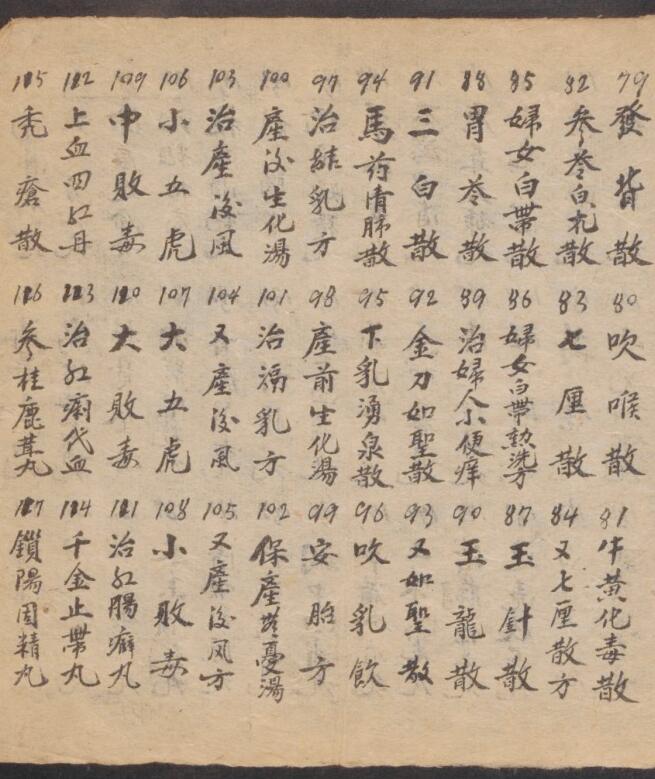 79 發背散
80 吹喉散
81 牛黃化毒散
82 參苓白朮散
83 七厘散
84 又七厘散方
85 婦女白帶散
86 婦女白帶熱洗方
87 玉針散
88 胃苓散
89 治婦人小便痒
90 玉龍散
91 三白散
92 金刀如聖散
93 又如聖散
94 馬药清肺散
95 下乳湧泉散
96 吹乳飲
97 治結乳方
98 產前生化湯
99 安胎方
100 產後生化湯
101 治漏乳方
102 保產無憂湯
103 治產後風
104 又產後風
105 又產後风方
106 小五虎
107 大五虎
108 小敗毒
109 中敗毒
110 大敗毒
111 治紅腸癖丸
112 上血四紅丹
113 治紅痢代血
114 千金止帶丸
115 禿瘡散
116 參桂鹿茸丸
117 鎖陽固精丸